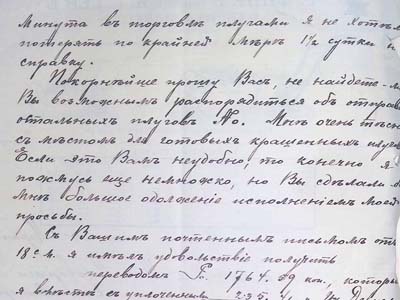 минута въ торговлѣ плугами я не хотѣлъ
потерять по крайней мѣрѣ 1½ сутки н
справку.
Покорнѣйше прошу Васъ, не найдете-ли
Вы возможнымъ распорядиться объ отправ
остальныхъ плуговъ No. Мнѣ очень тѣсн
съ мѣстомъ для готовыхъ крашенныхъ плуго
Если это Вамъ неудобно, то конечно я
пожмусь еще немножко, но Вы сдѣлали б
мнѣ большое одолженіе исполненіемъ моей
просьбы.
Съ Вашимъ почтеннымъ письмомъ отъ
18 с. м. я имѣлъ удовольствіе получить
переводомъ Р. 1764.39 коп., которы
я вмѣстѣ съ уплоченным 235.